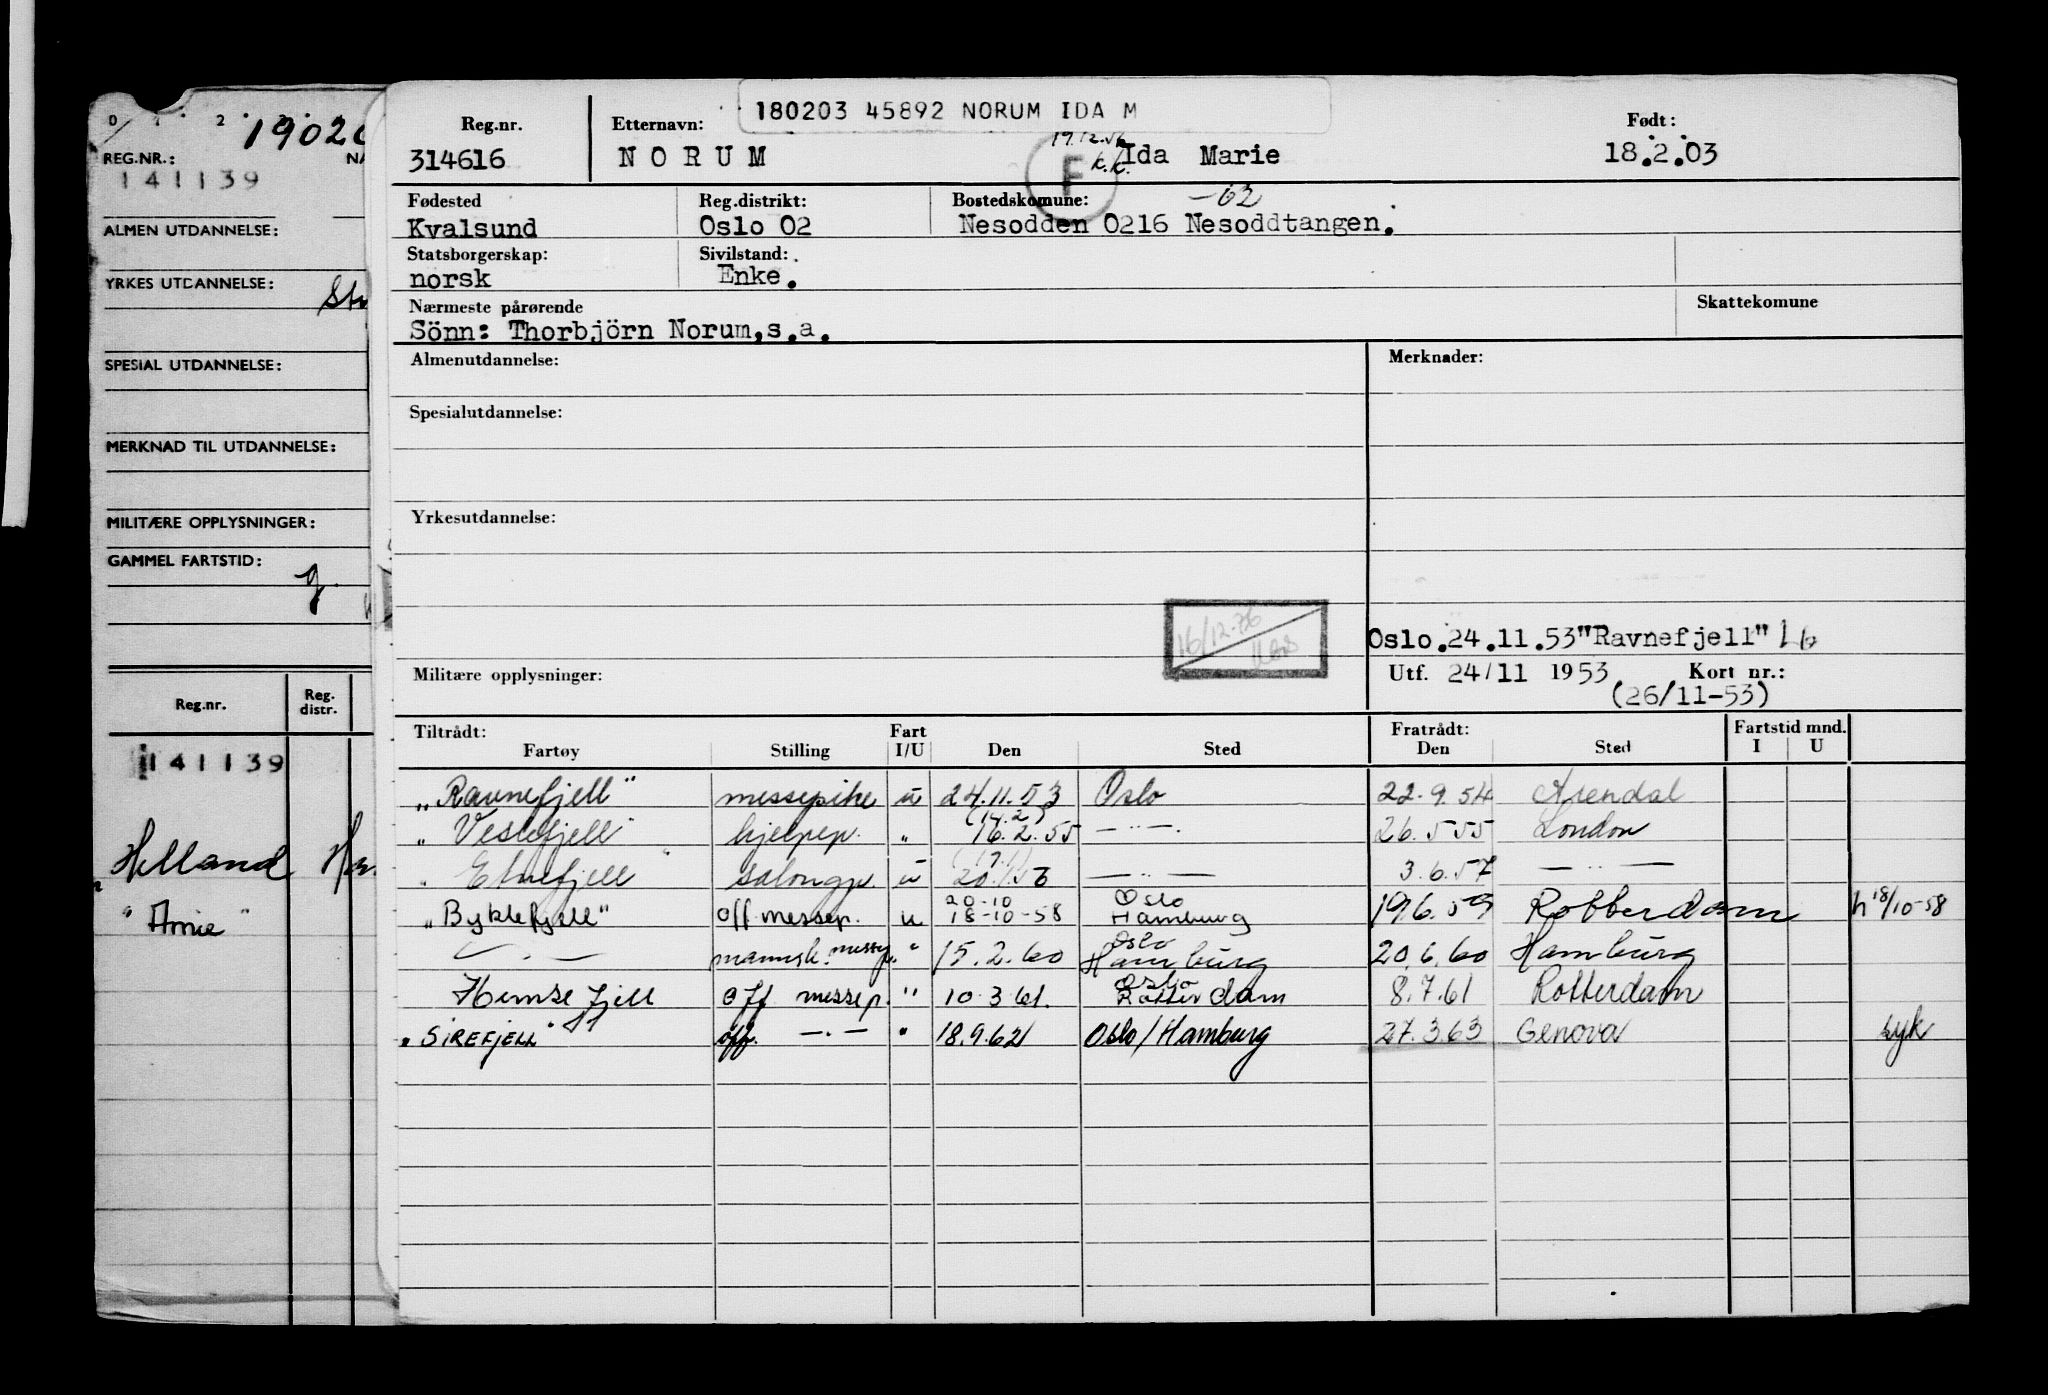 0 1 2
19020
REG.NR.:
NA
141139
ALMEN UTDANNELSE:
YRKES UTDANNELSE:
SPESIAL UTDANNELSE:
MERKNAD TIL UTDANNELSE:
MILITÆRE OPPLYSNINGER:
GAMMEL FARTSTID:
Reg.nr. Reg. distr.
141139
Helland
"Arnie"
180203 45892 NORUM IDA M
Reg.nr. Etternavn: Født:
19.12.56 k.k.
314616 NORUM F Ida Marie 18.2.03
Fødested Reg.distrikt: Bostedskomune: -02
Kvalsund Oslo 02 Nesodden 0216 Nesoddtangen.
Statsborgerskap: Sivilstand:
norsk Enke.
Nærmeste pårørende Skattekomune
Sönn: Thorbjörn Norum,s.a.
Almenutdannelse: Merknader:
Spesialutdannelse:
Yrkesutdannelse:
16/12-76
Oslo.24.11.53"Ravnefjell"
Militære opplysninger: Utf. 24/11 1953 Kort nr.:
(26/11-53)
Tiltrådt: Fart Fratrådt: Fartstid mnd.
Fartøy Stilling I/U Den Sted Den Sted I U
"Ravnefjell" messepike u 24.11.53 Oslo 22.9.54 Arendal
(14.2)
" Vestefjell" hjelpep. " 16.2.55 — " — 26.5 55 London
(17.1)
" Etnefjell " salongp. u 20.1.56 — " — 3.6.57 — " —
20-10 Oslo
"Byklefjell" off.messep. u 18-10-58 Hamburg 19.6.59 Rotterdam h 18/10-58
Oslo
— " — mannsk. messep. " 15.2.60 Hamburg 20.6.60 Hamburg
Oslo
Hemsefjell off messep. " 10.3 61. Rotterdam 8.7.61 Rotterdam
"SIREFJELL" off. — " — " 18.9.62 Oslo/Hamburg 27.3.63 Genova syk